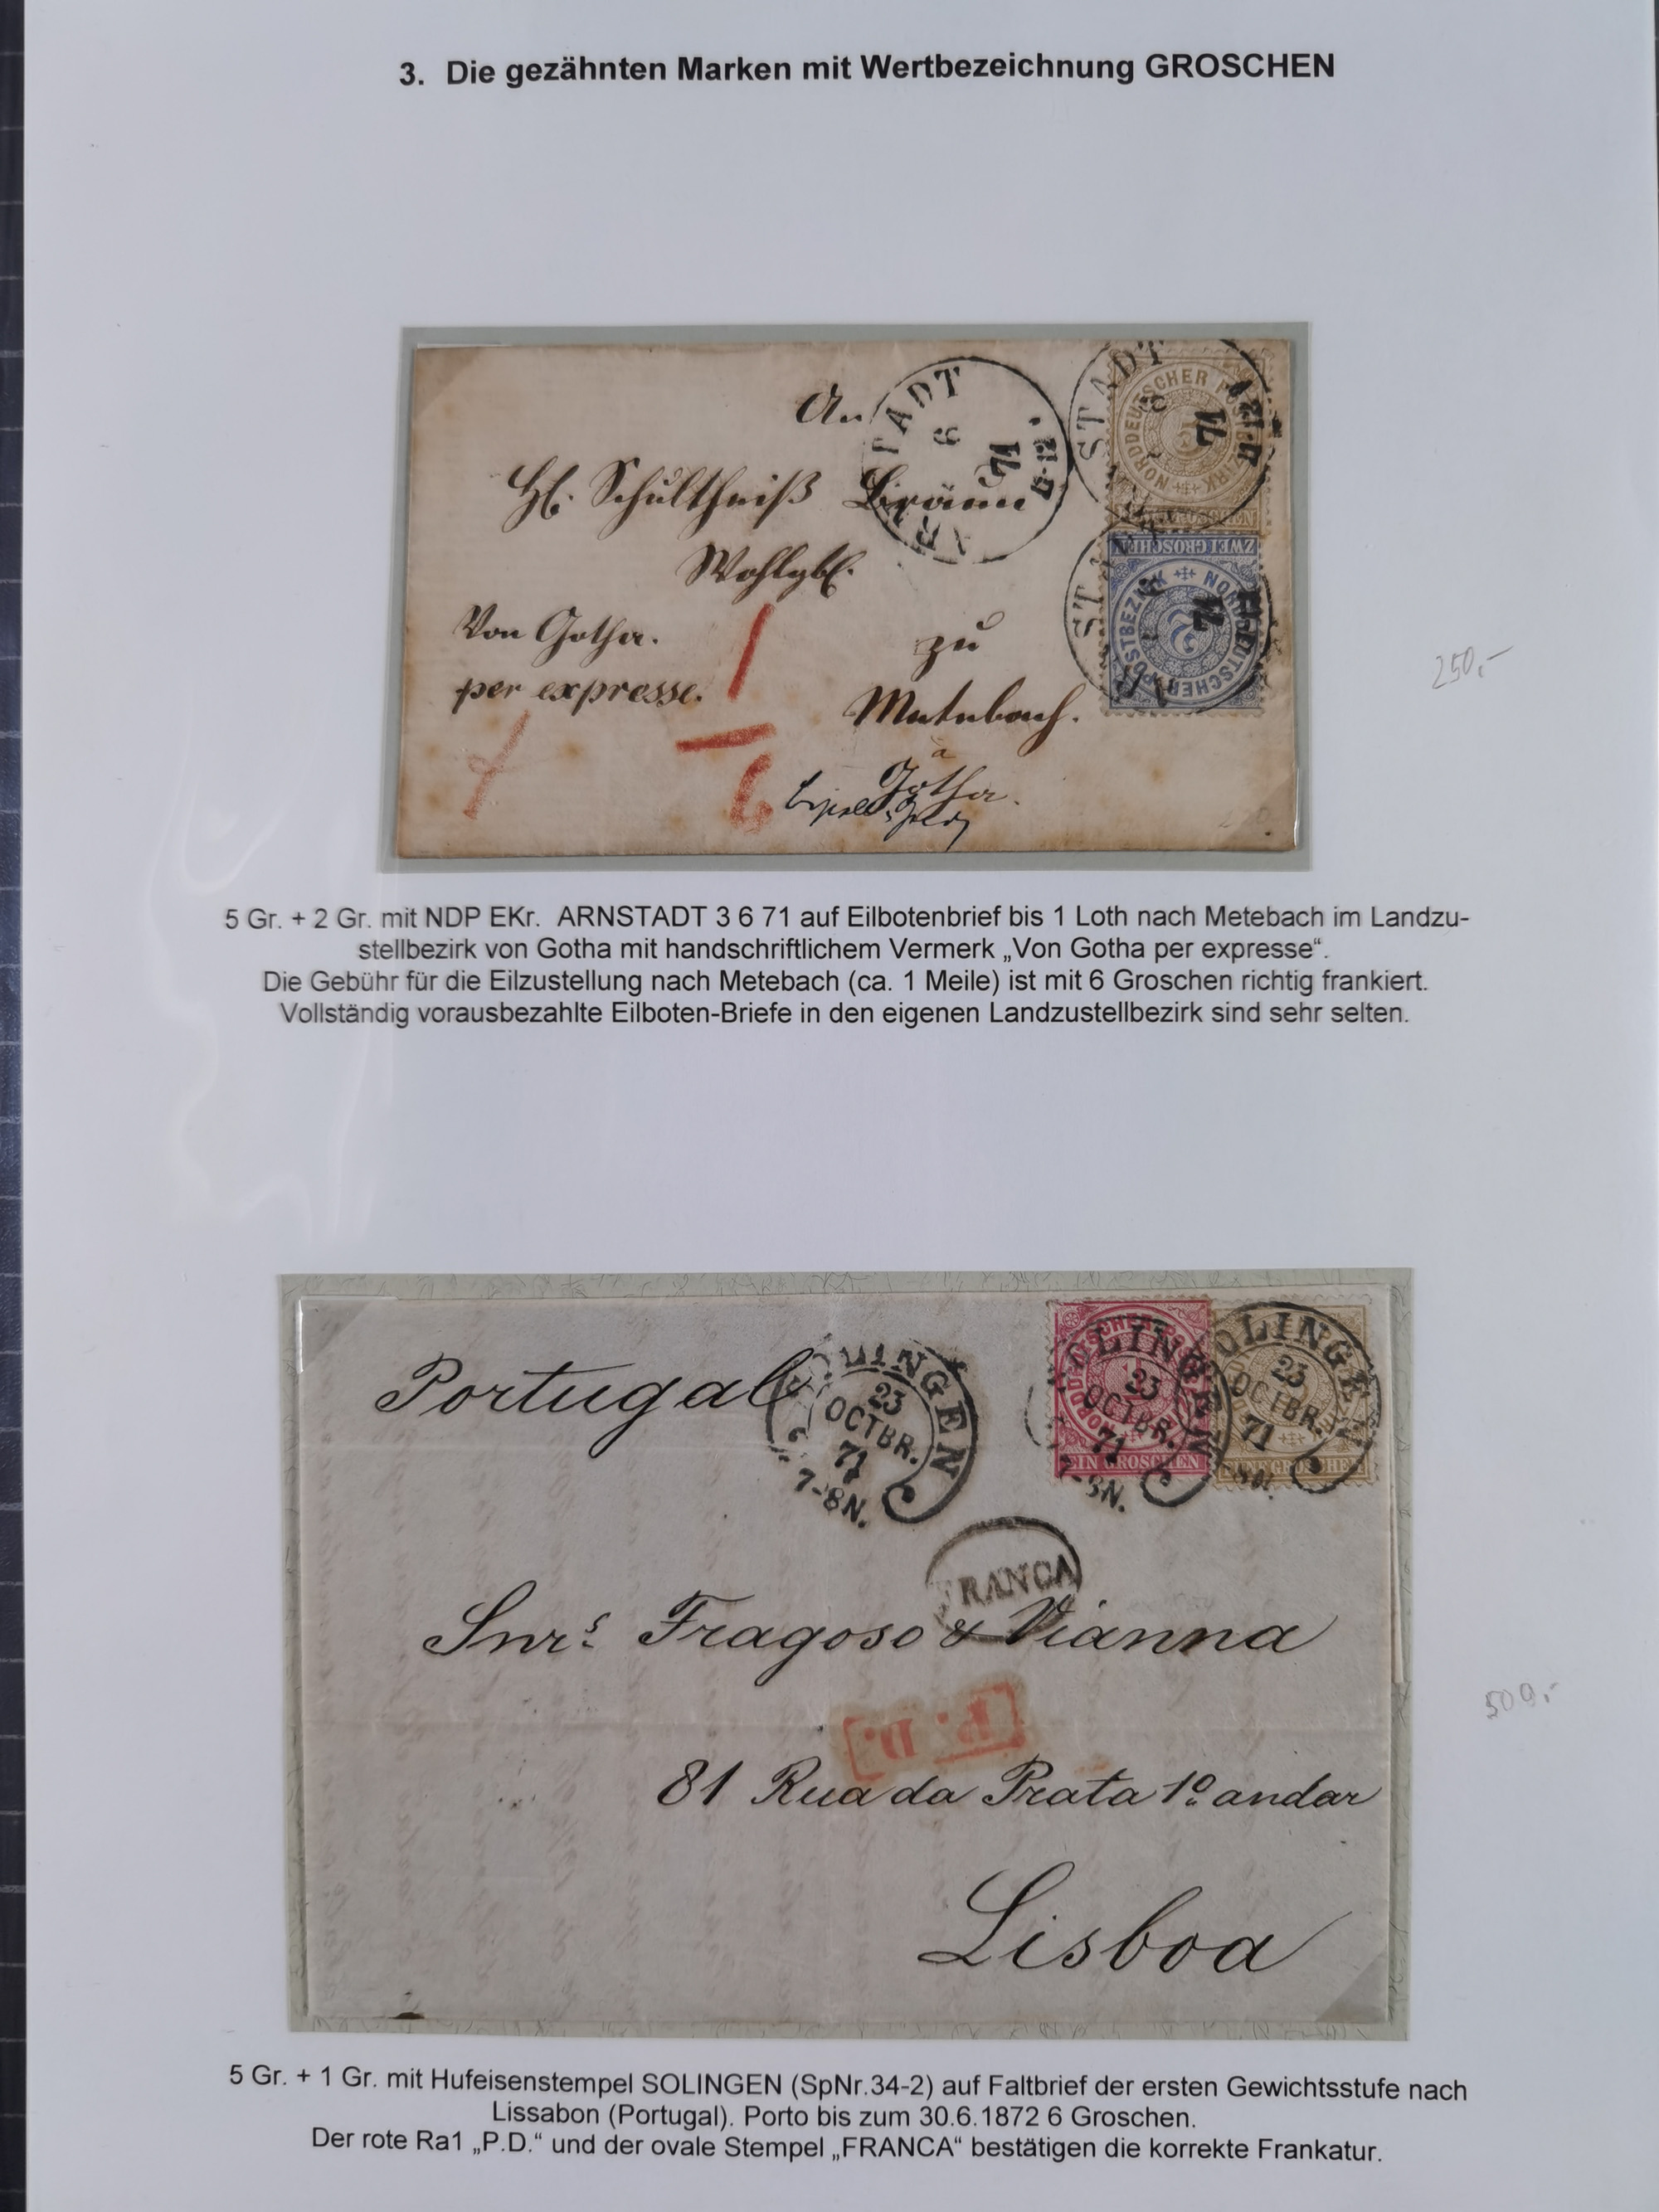 3. Die gezähnten Marken mit Wertbezeichnung GROSCHEN
An
STADT
6
71
STADT
71
NORDDEUTSCHER POSTBEZIRK
ZWEI GROSCHEN
NORDDEUTSCHER POSTBEZIRK
2
71
H. Schultheiß Braun
Wohlgb.
Von Gotha.
zu
per expresse.
1
6
Metebach.
a
Gotha.
250,-
5 Gr. + 2 Gr. mit NDP EKr. ARNSTADT 3 6 71 auf Eilbotenbrief bis 1 Loth nach Metebach im Landzu-
stellbezirk von Gotha mit handschriftlichem Vermerk „Von Gotha per expresse“.
Die Gebühr für die Eilzustellung nach Metebach (ca. 1 Meile) ist mit 6 Groschen richtig frankiert.
Vollständig vorausbezahlte Eilboten-Briefe in den eigenen Landzustellbezirk sind sehr selten.
Portugal
SOLINGEN
23
OCTBR.
71
7-8N.
SOLINGEN
23
OCTBR.
71
EIN GROSCHEN
SOLINGEN
23
OCTBR.
71
FÜNF GROSCHEN
FRANCA
Snrs. Fragoso & Vianna
P. D.
81 Rua da Prata 1º andar
Lisboa
500,-
5 Gr. + 1 Gr. mit Hufeisenstempel SOLINGEN (SpNr.34-2) auf Faltbrief der ersten Gewichtsstufe nach
Lissabon (Portugal). Porto bis zum 30.6.1872 6 Groschen.
Der rote Ra1 „P.D.“ und der ovale Stempel „FRANCA“ bestätigen die korrekte Frankatur.